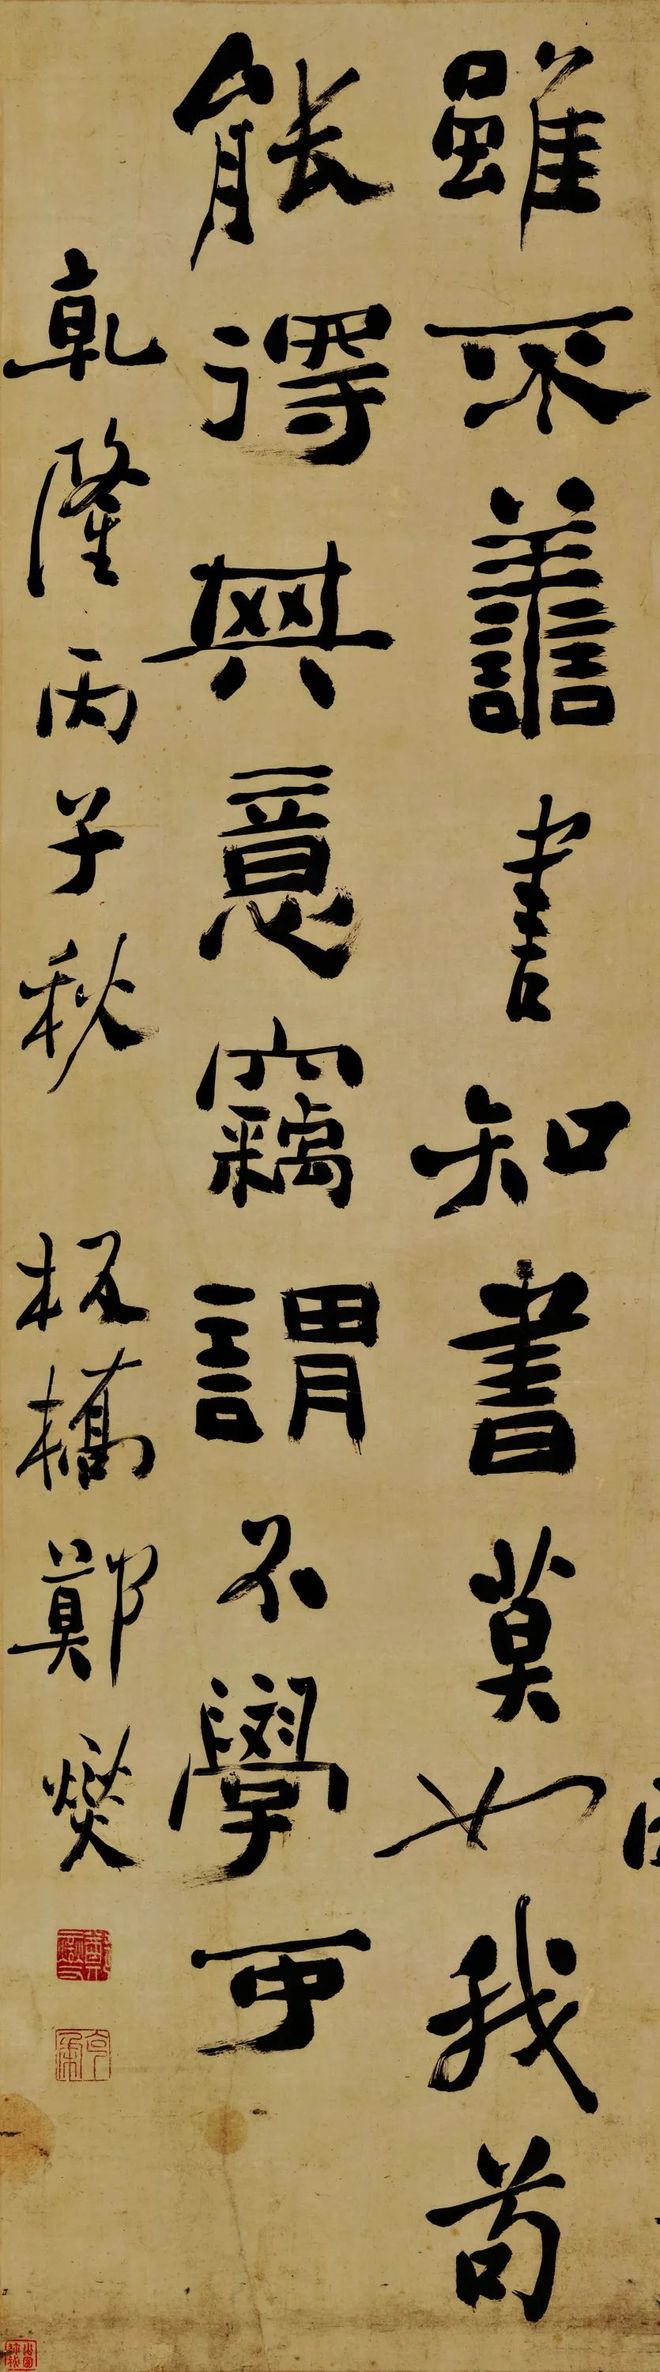 雖不善書知書莫如我苟
能得其意竊謂不學可
乾隆丙子秋 板橋鄭燮